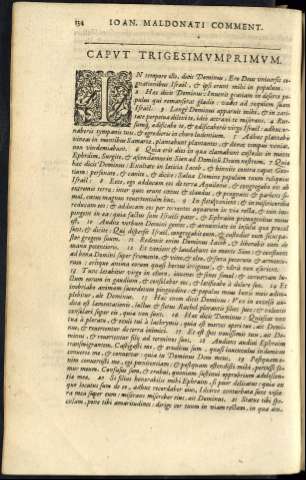 154 IOAN. MALDONATI COMMENT.
CAPVT TRIGESIMVMPRIMVM.
IN tempore illo, dicit Dominus, Ero Deus vniuersis co-
gnationibus Israël, & ipsi erunt mihi in populum.
2 Hæc dicit Dominus: Inuenit gratiam in deserto po-
pulus qui remanserat gladio: vadet ad requiem suam
Israël. 3 Longè Dominus apparuit mihi: & in cari-
tate perpetua dilexi te, ideo attraxi te miserans. 4 Rur-
sumq; ædificabo te, & ædificaberis virgo Israël: adhuc or-
naberis tympanis tuis, & egredieris in choro ludentium. 5 Adhuc plantabis
vineas in montibus Samariæ, plantabunt plantantes, & donec tempus veniat,
non vindemiabunt. 6 Quia erit dies in qua clamabunt custodes in monte
Ephraim, Surgite, & ascendamus in Sion ad Dominū Deum nostrum. 7 Quia
hæc dicit Dominus: Exultate in lætitia Iacob, & hinnite contra caput Gen-
tium: personate, & canite, & dicite: Salua Domine populum tuum reliquias
Israël. 8 Ecce, ego adducam eos de terra Aquilonis, & congregabo eos ab
extremis terræ: inter quos erunt cæcus & claudus, & prægnans & pariens si-
mul, cœtus magnus reuertentium huc. 9 In fletu venient: & in misericordia
reducam eos: & adducam eos per torrentes aquarum in via recta, & non im-
pingent in ea: quia factus sum Israëli pater, & Ephraim primogenitus meus
est. 10 Audite verbum Domini gentes, & annuntiate in insulis quæ procul
sunt, & dicite: Qui dispersit Israël, congregabit eum, & custodiet eum sicut pa-
stor gregem suum. 11 Redemit enim Dominus Iacob, & liberauit eum de
manu potentioris. 12 Et venient & laudabunt in monte Sion: & confluent
ad bona Domini super frumento, & vino, & oleo, & fœtu pecorum & armento-
rum: eritque anima eorum quasi hortus irriguus, & vltrà non esurient.
13 Tunc lætabitur virgo in choro, iuuenes & senes simul: & conuertam lu-
ctum eorum in gaudium, & consolabor eos, & lætificabo à dolore suo. 14 Et
inebriabo animam sacerdotum pinguedine: & populus meus bonis meis adim-
plebitur, ait Dominus. 15 Hæc dicit Dominus: Vox in excelso au-
dita est lamentationis, luctus & fletus Rachel plorantis filios suos, & nolentis
consolari super eis, quia non sunt. 16 Hæc dicit Dominus: Quiescat vox
tua à ploratu, & oculi tui à lachrymis: quia est merces operi tuo, ait Domi-
nus, & reuertentur de terra inimici. 17 Et est spes nouissimis tuis, ait Do-
minus, & reuertentur filij ad terminos suos. 18 Audiens audiui Ephraim
transmigrantem. Castigasti me, & eruditus sum, quasi iuuenculus indomitus:
conuerte me, & conuertar: quia tu Dominus Deus meus. 19 Postquam e-
nim conuertisti me, egi pœnitentiam: & postquam ostendisti mihi, percussi fe-
mur meum. Confusus sum, & erubui, quoniam sustinui opprobrium adolescen-
tiæ meæ. 20 Si filius honorabilis mihi Ephraim, si puer delicatus: quia ex
quo locutus sum de eo, adhuc recordabor eius. Idcirco conturbata sunt visce-
ra mea super eum: miserans miserebor eius, ait Dominus. 21 Statue tibi spe-
culam, pone tibi amaritudines: dirige cor tuum in viam rectam, in qua am-